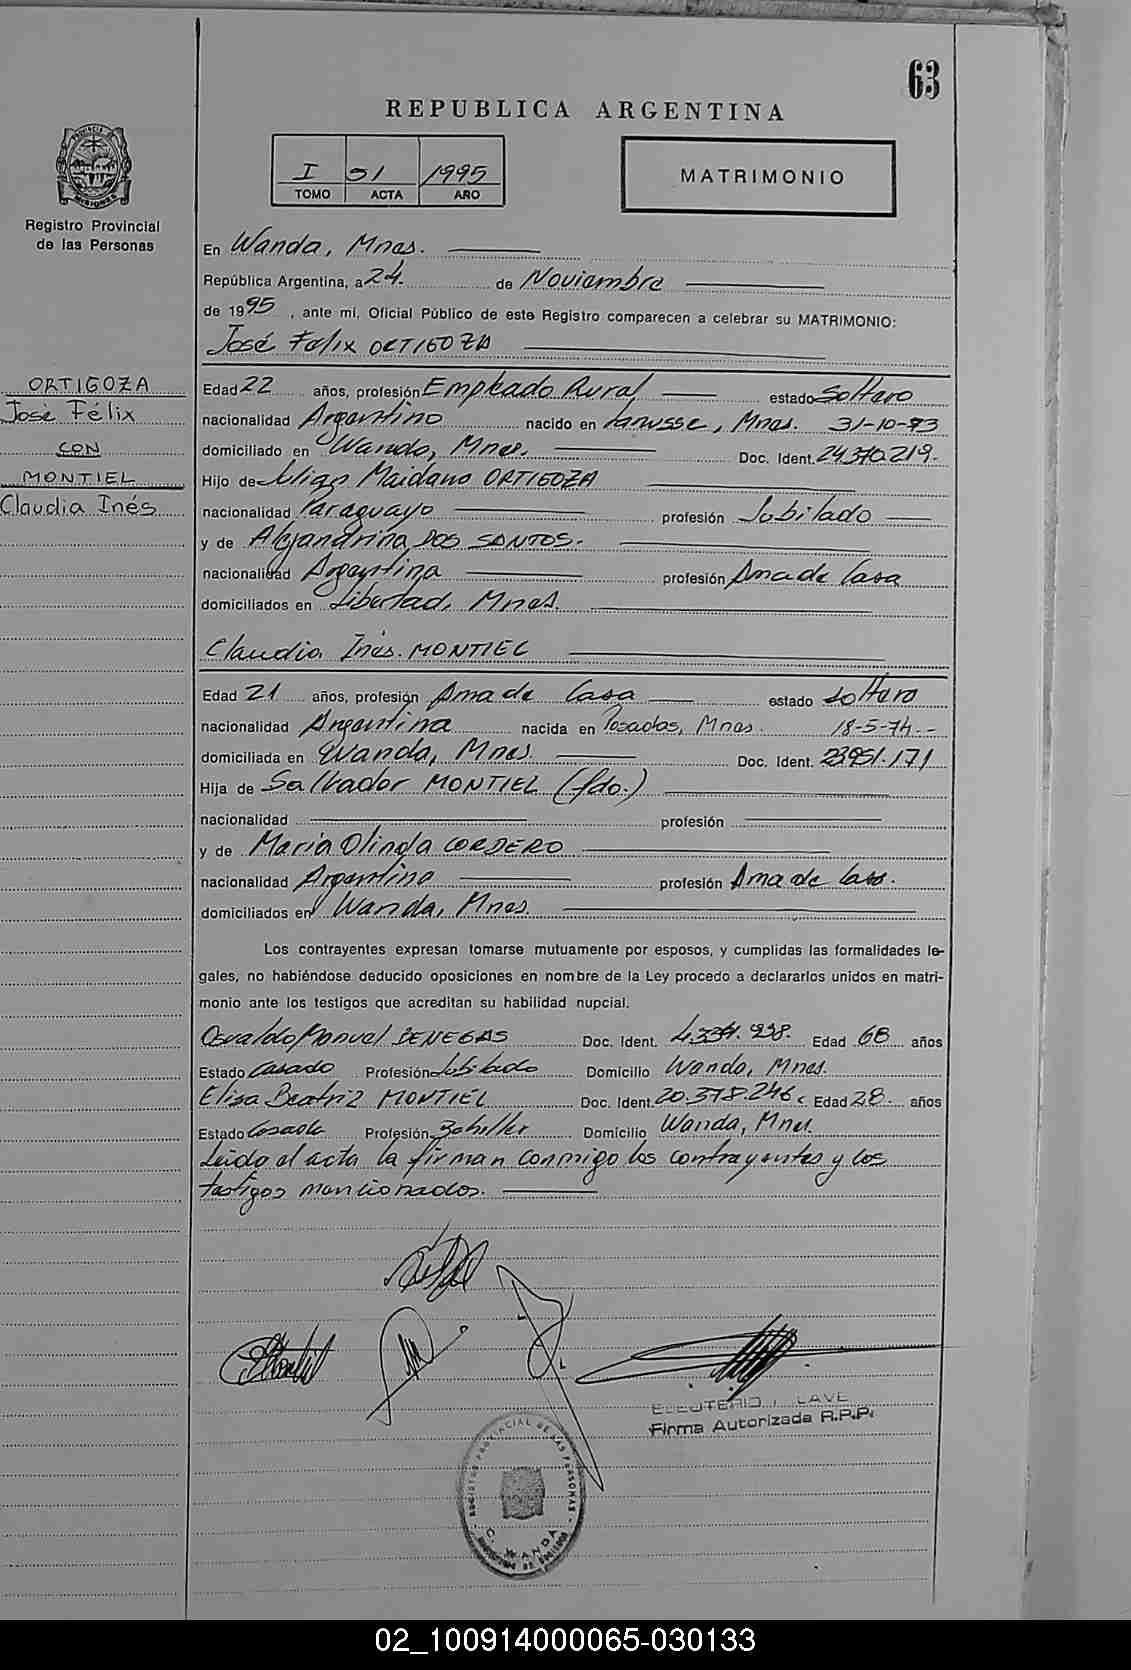 63
REPUBLICA ARGENTINA
I 51 1995
TOMO ACTA AÑO
MATRIMONIO
PROVINCIA DE MISIONES
Registro Provincial
de las Personas
En Wanda, Mnes.
República Argentina, a 24. de Noviembre
de 1995, ante mi, Oficial Público de este Registro comparecen a celebrar su MATRIMONIO:
José Felix ORTIGOZA
ORTIGOZA
José Félix
CON
MONTIEL
Claudia Inés
Edad 22 años, profesión Empleado Rural estado soltero
nacionalidad Argentino nacido en Lanusse, Mnes. 31-10-73
domiciliado en Wanda, Mnes. Doc. Ident. 24.370.219.
Hijo de Maidano ORTIGOZA
nacionalidad Paraguayo profesión Jubilado
y de Alejandrina DOS SANTOS.
nacionalidad Argentina profesión Ama de Casa
domiciliados en Libertad, Mnes.
Claudia Inés. MONTIEL
Edad 21 años, profesión Ama de Casa estado soltero
nacionalidad Argentina nacida en Posadas, Mnes. 18-5-74.-
domiciliada en Wanda, Mnes Doc. Ident. 23.951.171
Hija de Salvador MONTIEL (fdo.)
nacionalidad profesión
y de María Olinda CORDERO
nacionalidad Argentina profesión Ama de Casa.
domiciliados en Wanda, Mnes.
Los contrayentes expresan tomarse mutuamente por esposos, y cumplidas las formalidades le-
gales, no habiéndose deducido oposiciones en nombre de la Ley procedo a declararlos unidos en matri-
monio ante los testigos que acreditan su habilidad nupcial.
Osvaldo Manuel BENEGAS Doc. Ident. Edad 68 años
Estado Casado Profesión Jubilado Domicilio Wanda, Mnes.
Elisa Beatriz MONTIEL Doc. Ident. 20.378.246. Edad 28. años
Estado Casada Profesión Bachiller Domicilio Wanda, Mnes.
Leido el acta la firman conmigo los contrayentes y los
testigos mencionados.
ELEUTERIO
Firma Autorizada R.P.P.
REGISTRO PROVINCIAL DE LAS PERSONAS
C. WANDA
02_100914000065-030133